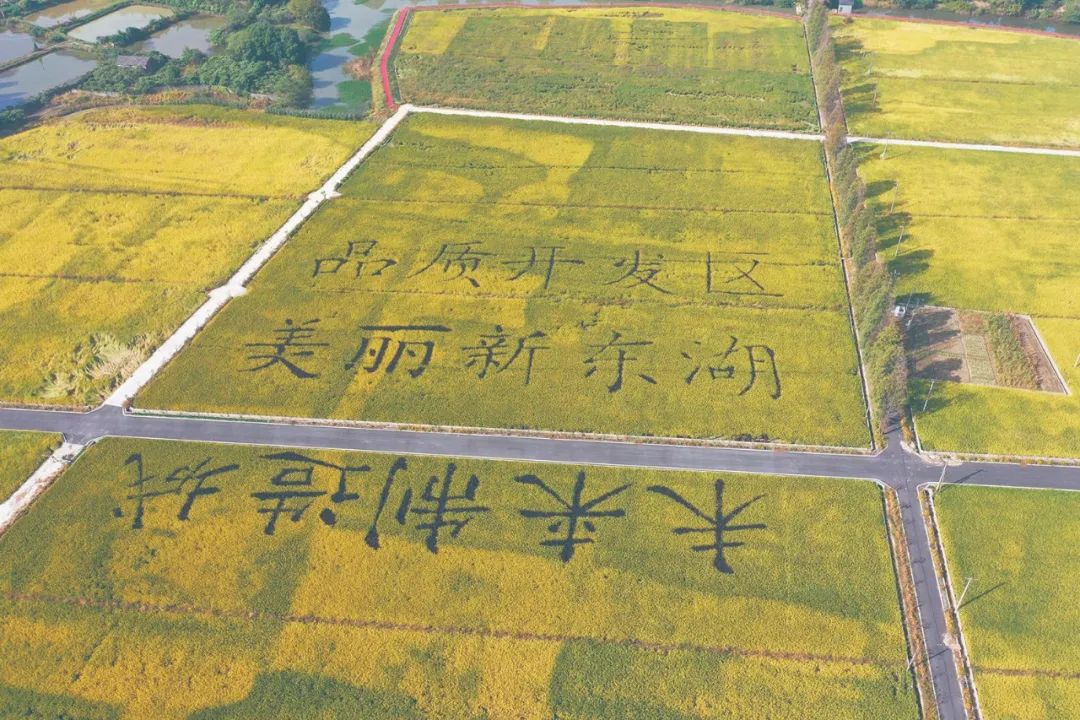 品质开发区
美丽新东湖
未来制造城